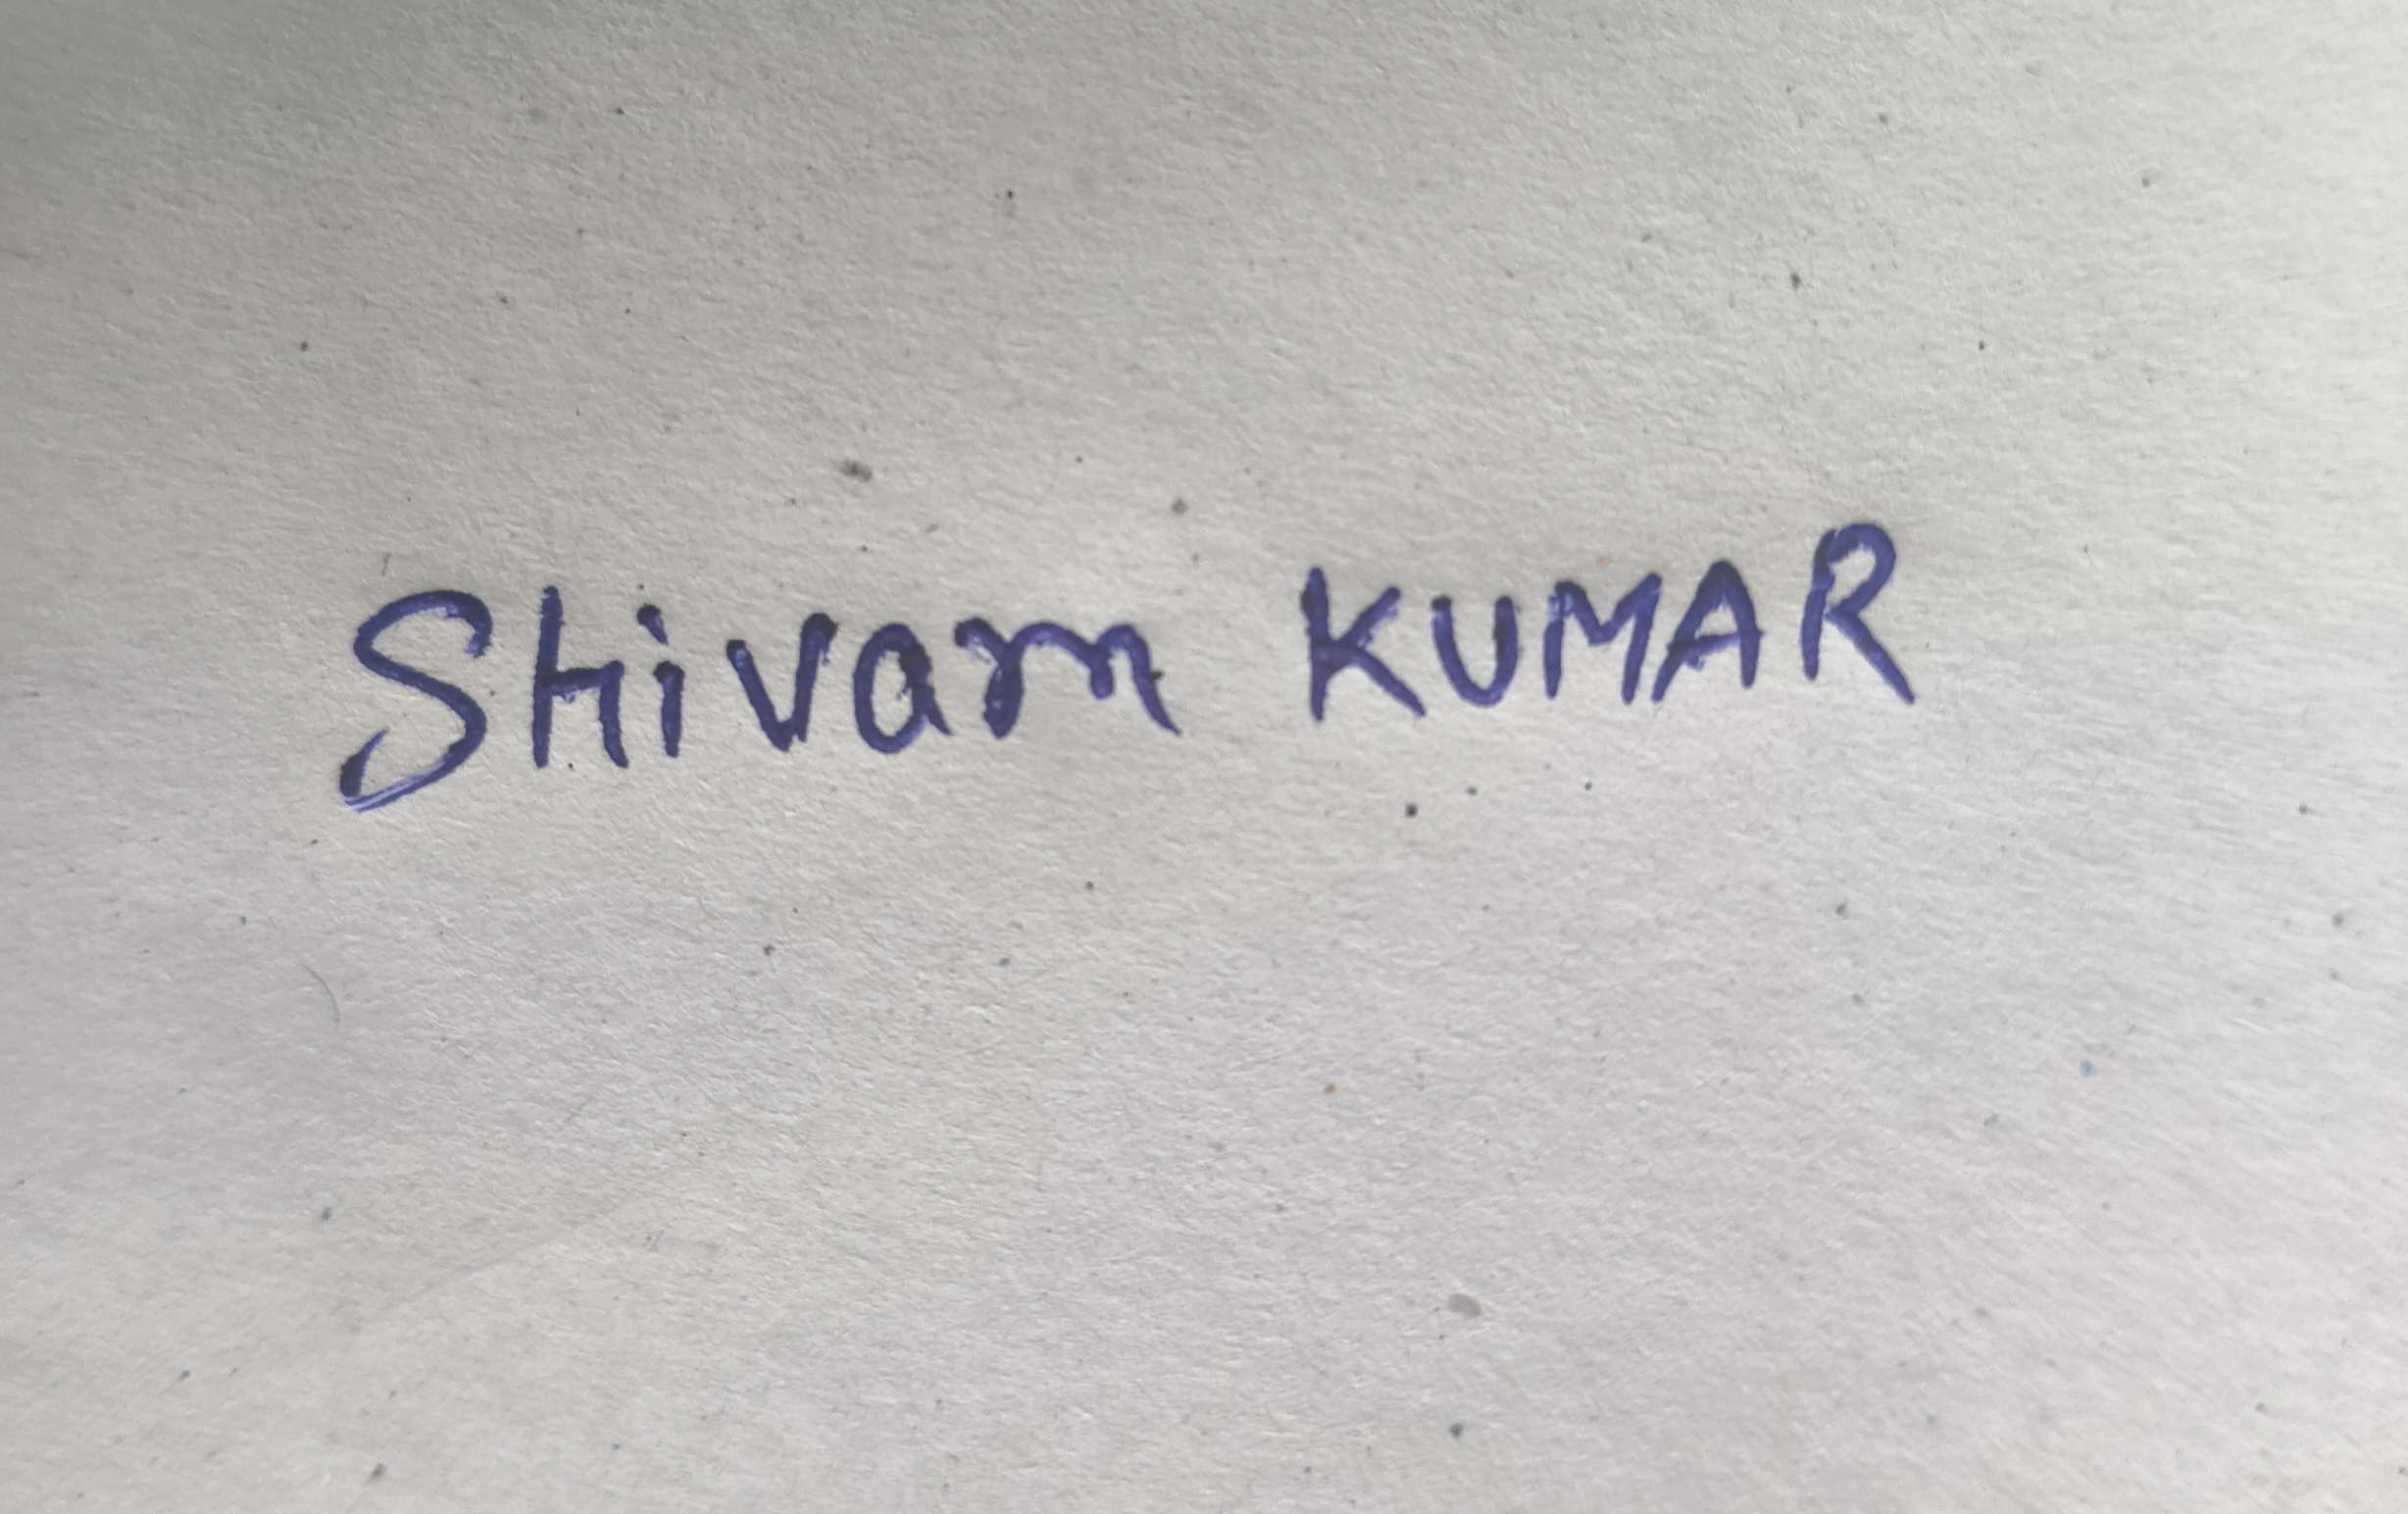 Shivam KUMAR